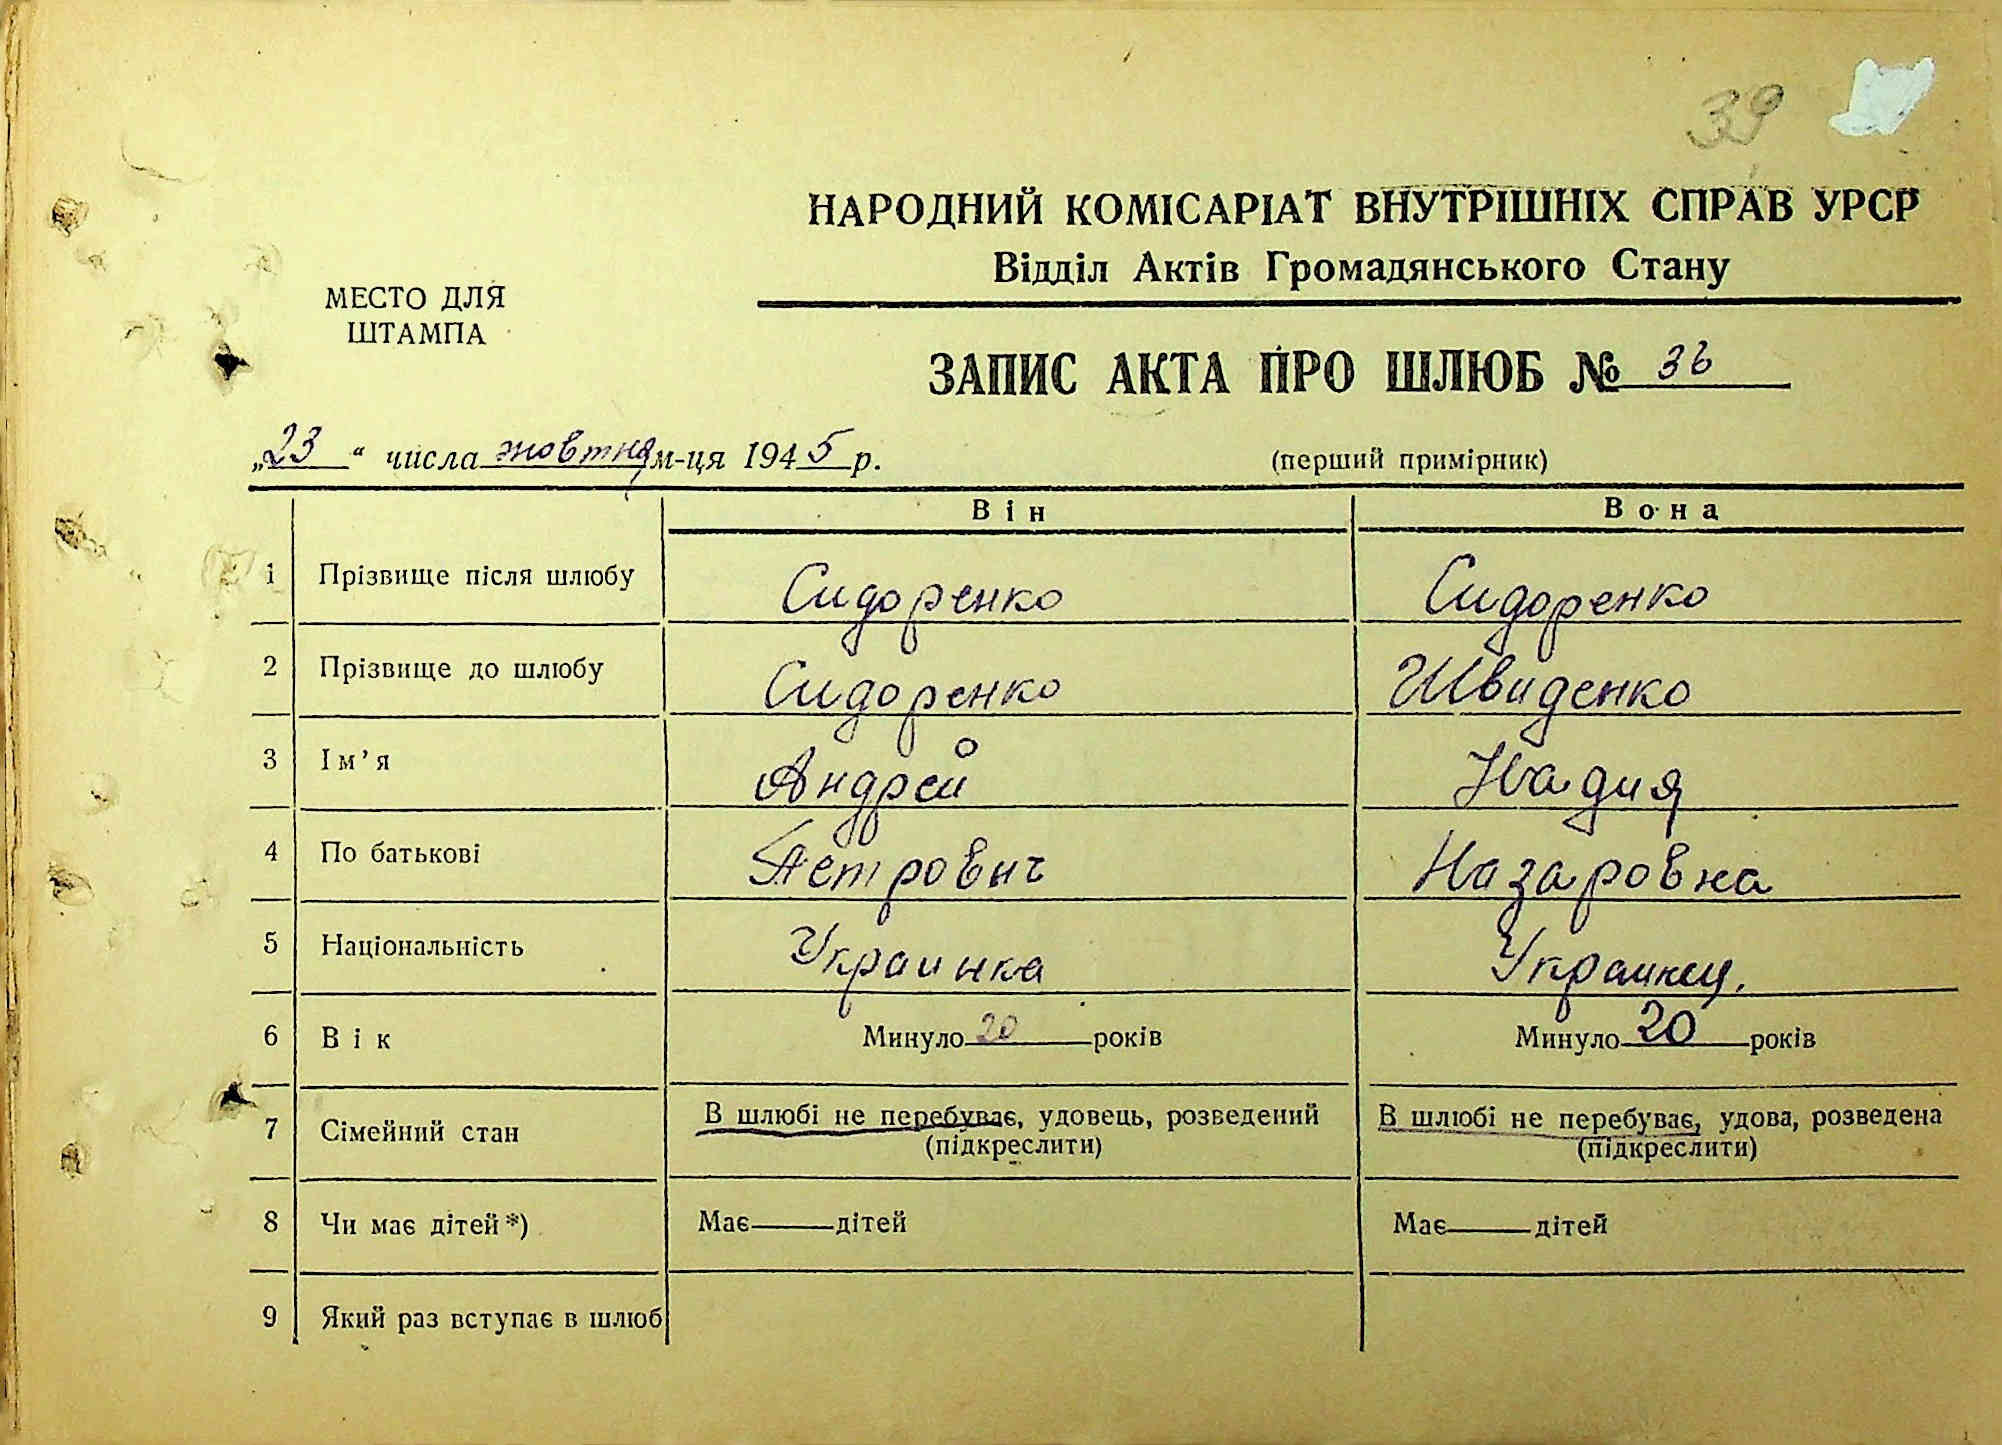 39
НАРОДНИЙ КОМІСАРІАТ ВНУТРІШНІХ СПРАВ УРСР
Відділ Актів Громадянського Стану
МЕСТО ДЛЯ
ШТАМПА
ЗАПИС АКТА ПРО ШЛЮБ № 36
„23“ числа жовтня м-ця 1945 р. (перший примірник)
Він Вона
1 Прізвище після шлюбу Сидоренко Сидоренко
2 Прізвище до шлюбу Сидоренко Швиденко
3 Ім’я Андрей Надия
4 По батькові Петрович Назаровна
5 Національність Украинка Украинец.
6 Вік Минуло 20 років Минуло 20 років
7 Сімейний стан В шлюбі не перебуває, удовець, розведений В шлюбі не перебуває, удова, розведена
(підкреслити) (підкреслити)
8 Чи має дітей*) Має — дітей Має — дітей
9 Який раз вступає в шлюб